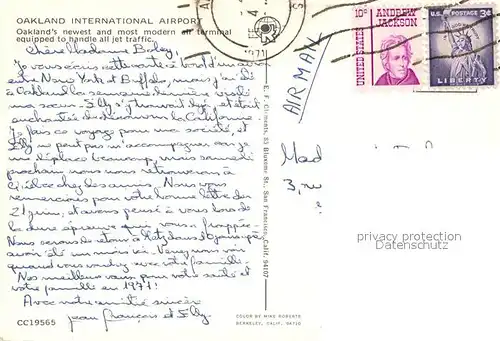 OAKLAND INTERNATIONAL AIRPORT
Oakland's newest and most modern air terminal
equipped to handle all jet traffic.
Chère Madame
Je vous écris cette carte à bord d'un avion
entre New York et Buffalo, mais j'ai été
à Oakland la semaine dernière visité
ma sœur. Elly s'y trouvait et était
enchantée de découvrir la Californie
Je fais ce voyage pour ma société, et
Elly ne peut pas m'accompagner car je
me déplace beaucoup, mais samedi
prochain nous nous retrouverons à
Québec chez des amis. Nous vous
remercions pour votre bonne lettre du
21 juin, et avons pensé à vous lors de
la dure épreuve qui vous a frappée.
Nous serons de retour à Metz dans
avoir été un mois ici. Venez nous voir
quand vous voulez avec votre famille.
Nos meilleurs vœux pour votre santé et
votre famille en 1971!
Avec notre amitié sincère
Jean François et Elly
CC19565
COLOR BY MIKE ROBERTS
BERKELEY, CALIF. 94710
E. F. Clements, 83 Bluxome St., San Francisco, Calif. 94107
1971
AIR MAIL
10¢
UNITED STATES
ANDREW
JACKSON
U.S. POSTAGE
3¢
LIBERTY
Mad
3, rue
privacy protection
Datenschutz